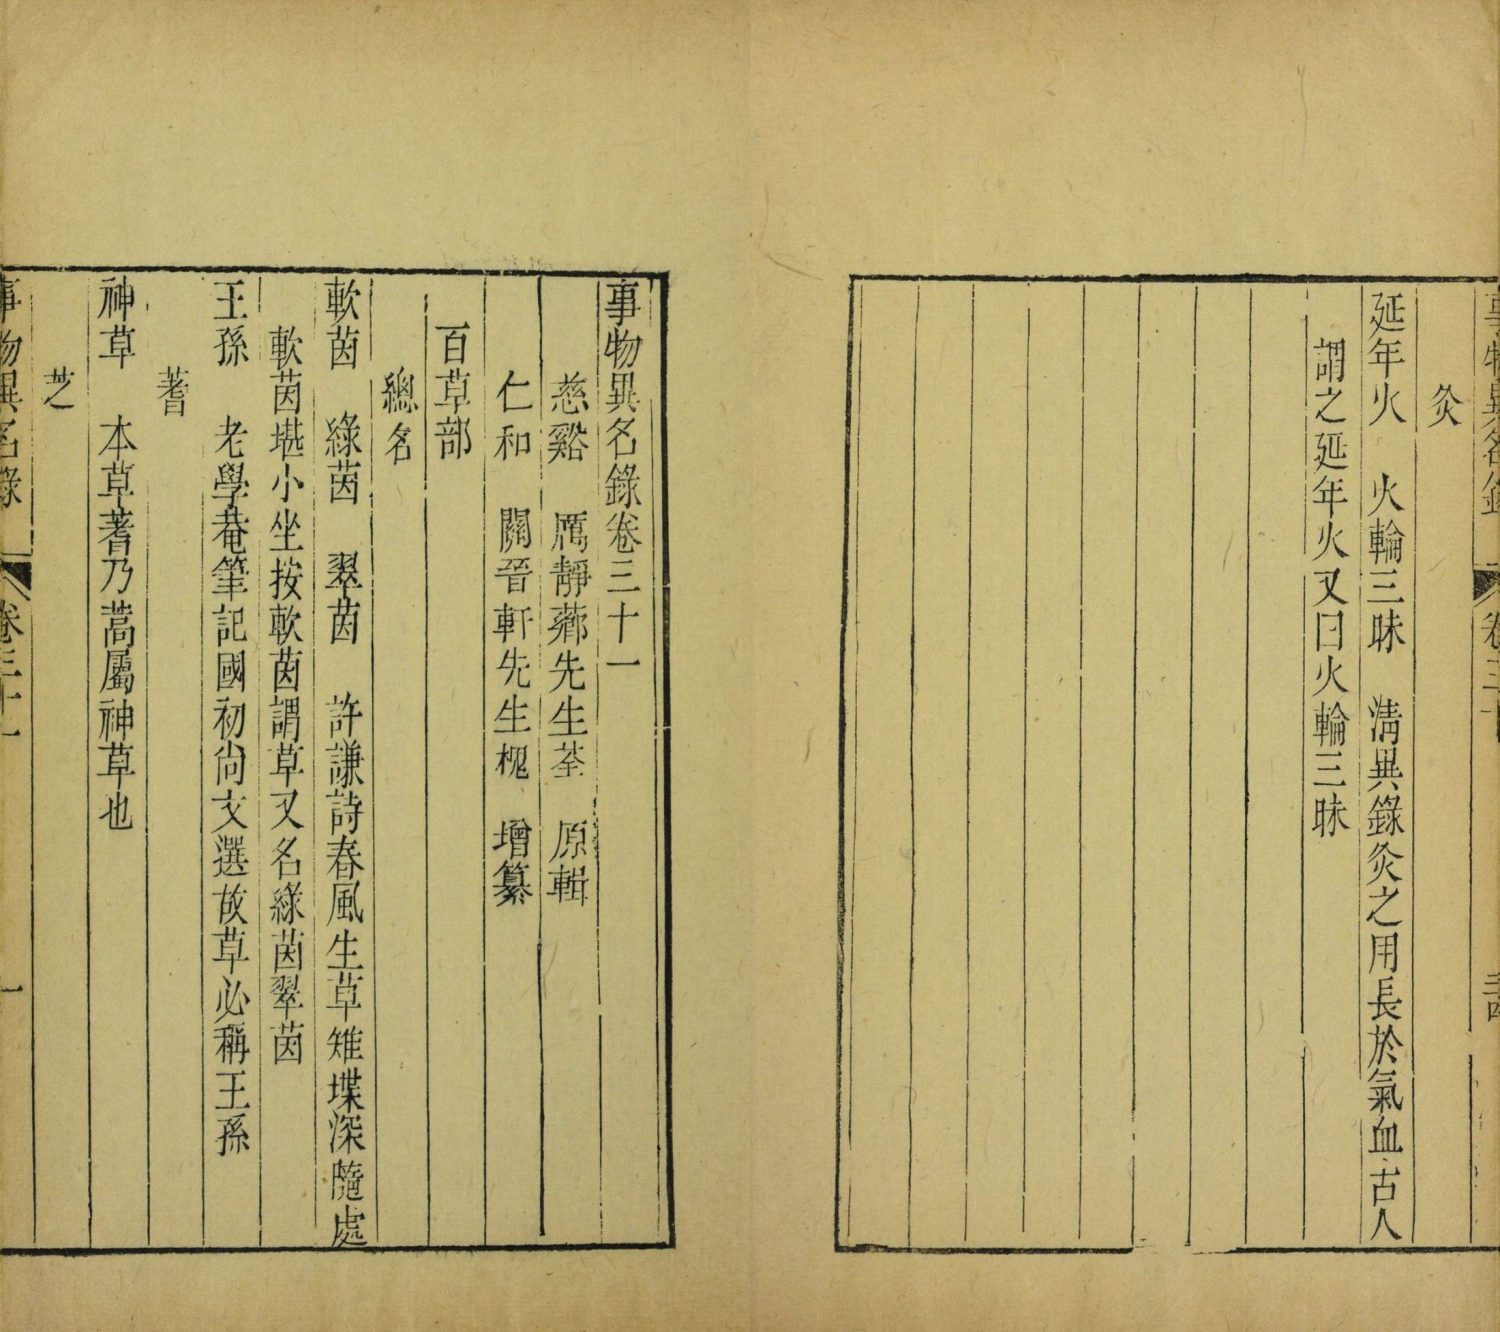 事物異名錄 卷三十
灸
延年火 火輪三昧 淸異錄灸之用長於氣血古人
謂之延年火又曰火輪三昧
事物異名錄卷三十一
慈谿 厲靜薌先生荃 原輯
仁和 關晉軒先生槐 增纂
百草部
總名
軟茵 綠茵 翠茵 許謙詩春風生草雉堞深隨處
軟茵堪小坐按軟茵謂草又名綠茵翠茵
王孫 老學菴筆記國初尙文選故草必稱王孫
蓍
神草 本草蓍乃蒿屬神草也
芝
事物異名錄 卷三十一 一